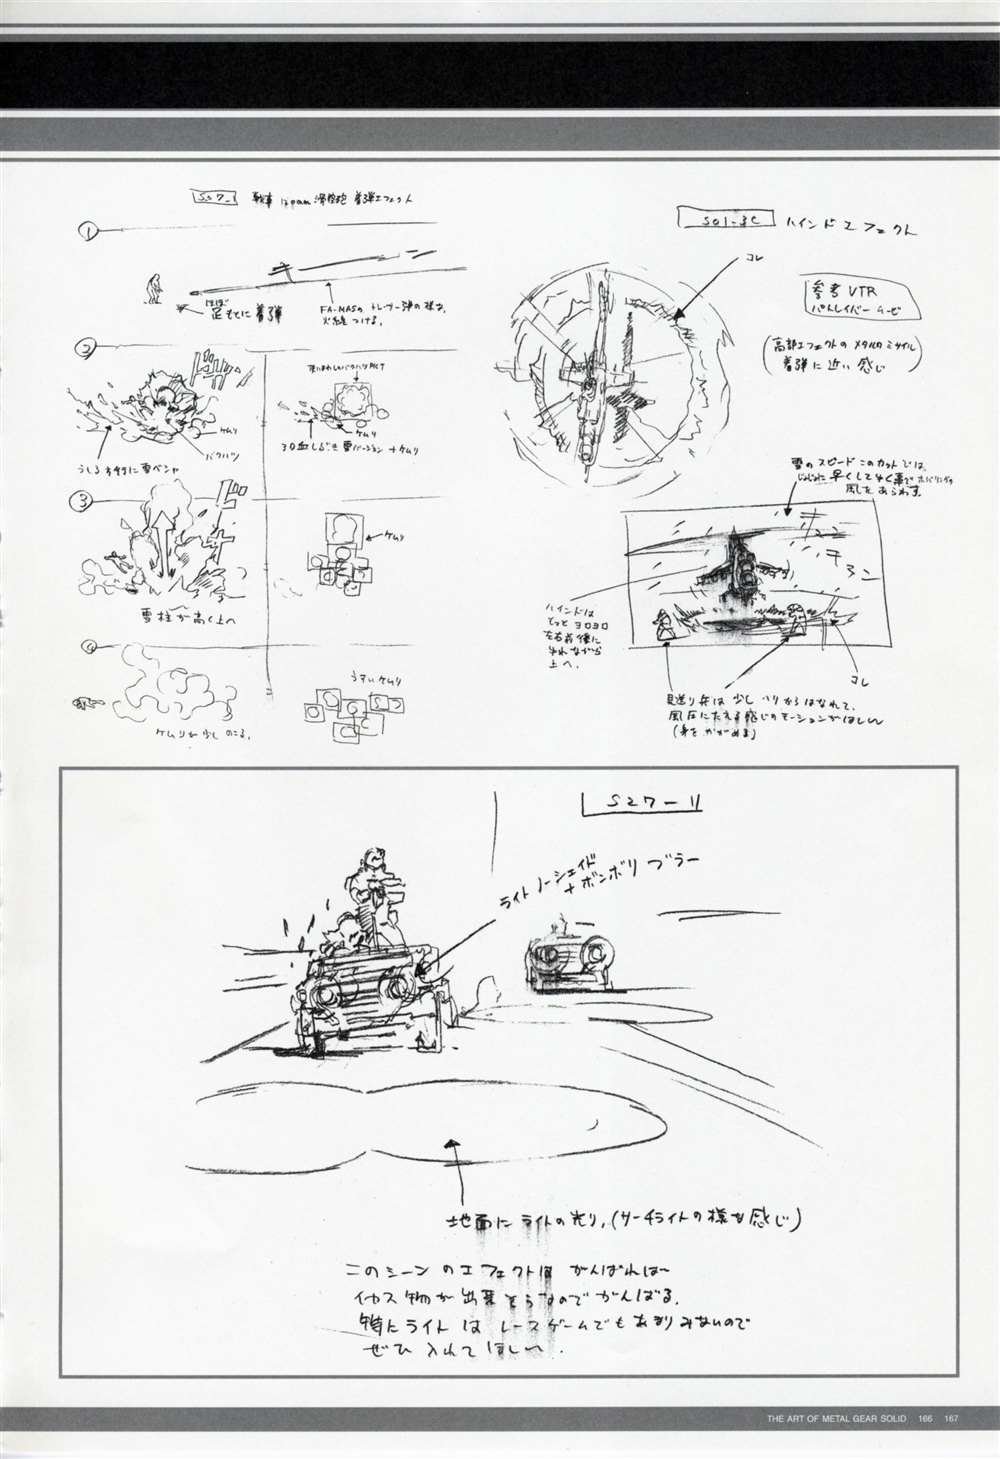 戦車 120mm 滑腔砲 着弾エフェクト
①
ほぼ
足もとに着弾
FA-MASの トレーサー弾の様な
火線つける。
②
ケムリ
バクハツ
うしろ方向に雪ベシャ
ケムリ
3D血しぶき 雪バージョン + ケムリ
③
ケムリ
雪柱が高く上へ
④
うすいケムリ
ケムリが少し のこる。
S01-3C
ハインドエフェクト
コレ
参考 VTR
パトレイバー ムービ
(高部エフェクトの メタルの ミサイル
着弾に近い感じ)
雪のスピード このカットでは、
じょじょに早くしてゆく事でホバリングの
風をあらわす。
ハインドは
ちょっと ヨロヨロ
左右前後に
ゆれながら
上へ。
コレ
見送り兵は 少し ヘリからはなれて、
風圧にたえる感じのモーションがほしい
(身を かがめる)
S27-11
ライト ノーシェイド
+ ボンボリ ブラー
地面に ライトの光り。(サーチライトの様な感じ)
このシーン のエフェクトは がんばれば〜
イカス物が出来そうなのでがんばる。
特にライト は レースゲームでもあまりみないので
ぜひ 入れて ほしい.
THE ART OF METAL GEAR SOLID 166 167